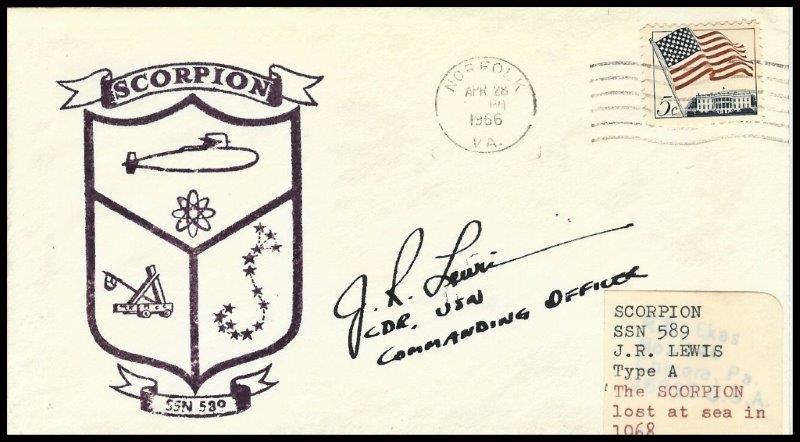 SCORPION
SSN 589
NORFOLK
APR 28
PM
1966
VA.
5c
J. R. Lewis
CDR. USN
COMMANDING OFFICER
SCORPION
SSN 589
J.R. LEWIS
Type A
The SCORPION
lost at sea in
1968
Ekas
Pa.